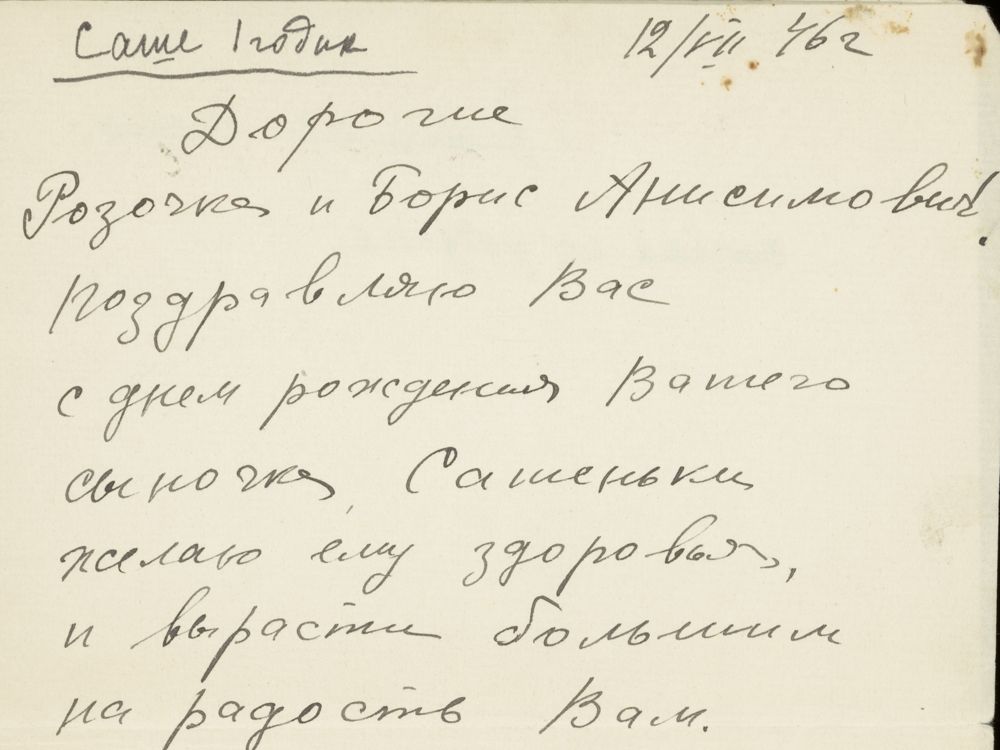 Саше 1 годик 12/VII 46 г
Дорогие
Розочка и Борис Анисимович!
поздравляю Вас
с днем рождения Вашего
сыночка, Сашеньки
желаю ему здоровья,
и вырасти большим
на радость Вам.